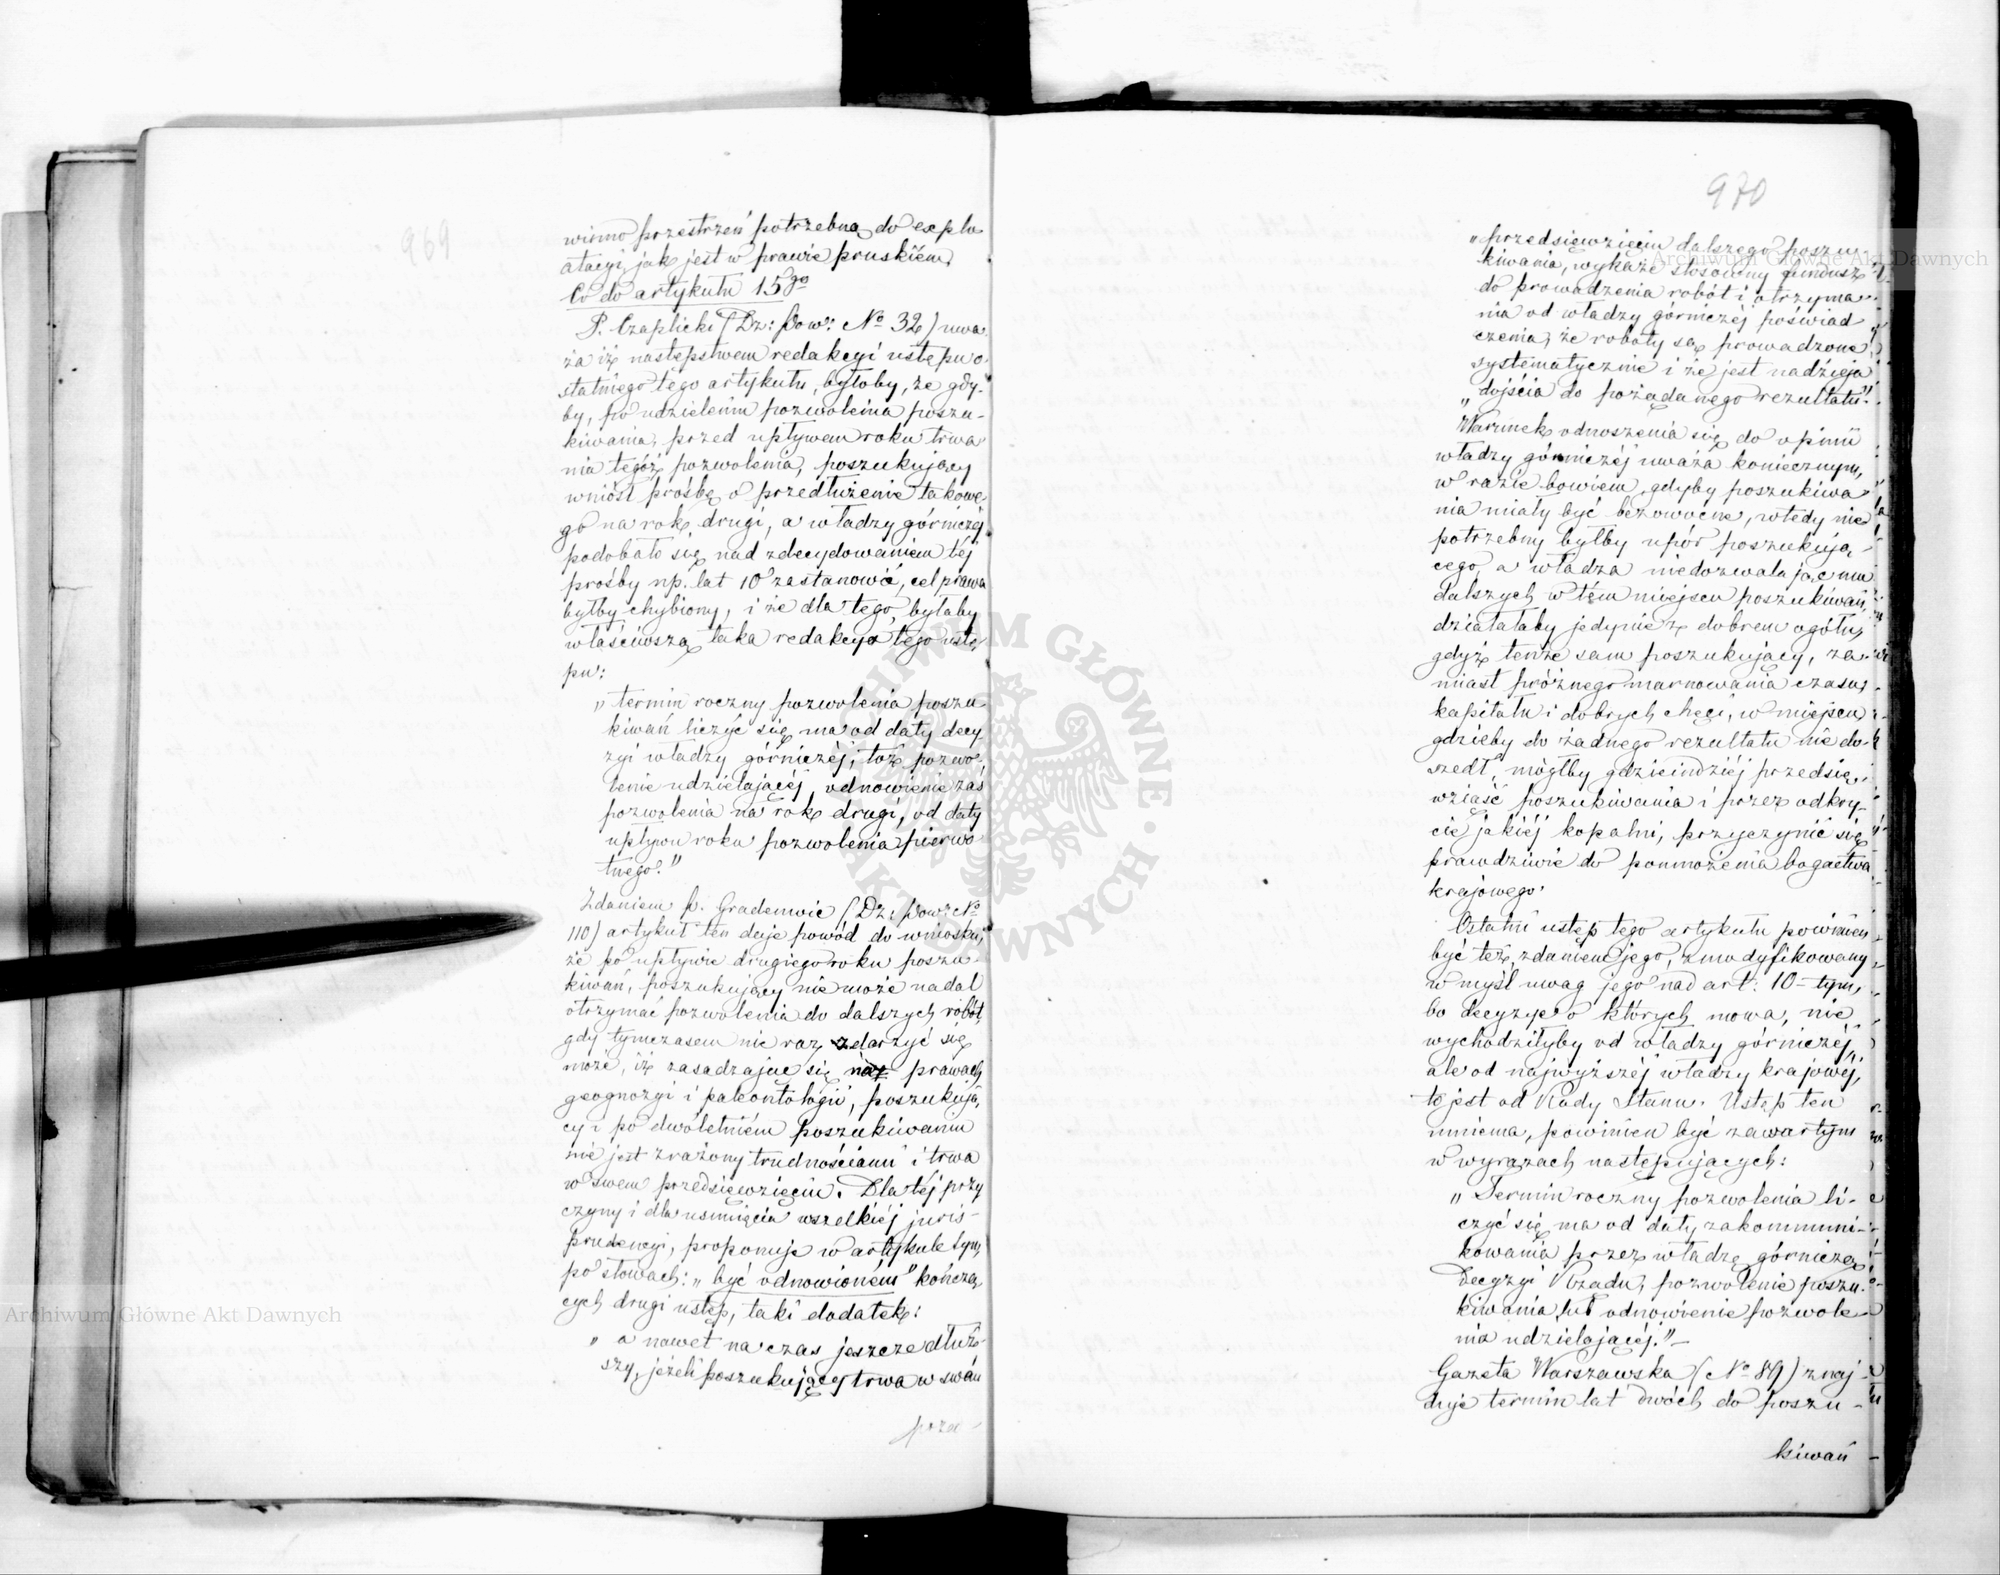 969
wismo przestrzeń potrzebną do explo
atacyi, jak jest w prawie pruskiém,
Co do artykułu 15go
P. Czaplicki (Dz: Pow: No 32) uwa
ża iż następstwem redakcyi ustępu o-
statniego tego artykułu, byłoby, że gdy-
by, po udzieleniu pozwolenia poszu-
kiwania, przed upływem roku trwa
nia tegóż pozwolenia, poszukujący
wniósł prośbę o przedłużenie takowe
go na rok drugi, a władzy górniczéj
podobało się nad zdecydowaniem téj
prośby np. lat 10 zastanowić, cel prawa
byłby chybiony, i że dla tego, byłaby
właściwszą taka redakcya tego ustę
pu:
„termin roczny pozwolenia poszu-
kiwań liczyć się ma od daty decy
zyi władzy górniczéj, toż pozwo-
lenie udzielającéj, odnowienie zaś
pozwolenia na rok drugi, od daty
upływu roku pozwolenia pierwo
tnego."
Zdaniem p. Gradenwic (Dz: Pow: No
110) artykuł ten daje powód do wniosku,
że po upływie drugiego roku poszu-
kiwań, poszukujący nie może nadal
otrzymać pozwolenia do dalszych robót,
gdy tymczasem nie raz zdarzyć się
może, iż zasadzając się na prawach
geognozyi i paleontologii, poszukują,
cy i po dwuletniém poszukiwaniu
nie jest zrażony trudnościami i trwa
w swem przedsięwzięciu. Dla téj przy
czyny i dla usunięcia wszelkiéj juris-
prudencyi, proponuje w artykule tym,
po słowach: „być odnowioném" kończą
cych drugi ustęp, taki dodatek:
„a nawet na czas jeszcze dłuż-
szy, jeżeli poszukujący trwa w swém
prze-
970
„przedsięwzięciu dalszego poszu-
kiwania, wykaże stosowny fundusz
do prowadzenia robót i otrzyma-
nia od władzy górniczéj poświad
czenia, że roboty są prowadzone
systematycznie i że jest nadzieja
„dojścia do pożądanego rezultatu."
Warunek odnoszenia się do opinii
władzy górniczéj uważa koniecznym,
w razie bowiem, gdyby poszukiwa
nia miały być bezowocne, wtedy nie
potrzebny byłby upór poszukują-
cego, a władza niedozwalając mu
dalszych w tém miejscu poszukiwań,
działałaby jedynie z dobrem ogółu,
gdyż tenże sam poszukujący, za-
miast próżnego marnowania czasu,
kapitału i dobrych chęci, w miejscu
gdzieby do żadnego rezultatu nie do-
szedł, mógłby gdzieindziéj przedsię,
wziąść poszukiwania i przez odkry-
cie jakiéj kopalni, przyczynić się
prawdziwie do pomnożenia bogactwa
krajowego.
Ostatni ustęp tego artykułu powinien
być też, zdaniem jego, zmodyfikowany
w myśl uwag jego nad art: 10-tym,
bo decyzye o których mowa, nie
wychodziłyby od władzy górniczéj,
ale od najwyższéj władzy krajowéj,
to jest od Rady Stanu. Ustęp ten
mniema, powinien być zawartym
w wyrazach następujących:
„Termin roczny pozwolenia li-
czyć się ma od daty zakommuni-
kowania przez władzę górniczą
decyzyi Rządu, pozwolenie poszu-
kiwania, lub odnowienie pozwole-
nia udzielającéj."
Gazeta Warszawska (No 89) znaj-
duje termin lat dwóch do poszu-
kiwań
Archiwum Główne Akt Dawnych
Archiwum Główne Akt Dawnych
ARCHIWUM GŁÓWNE AKT DAWNYCH